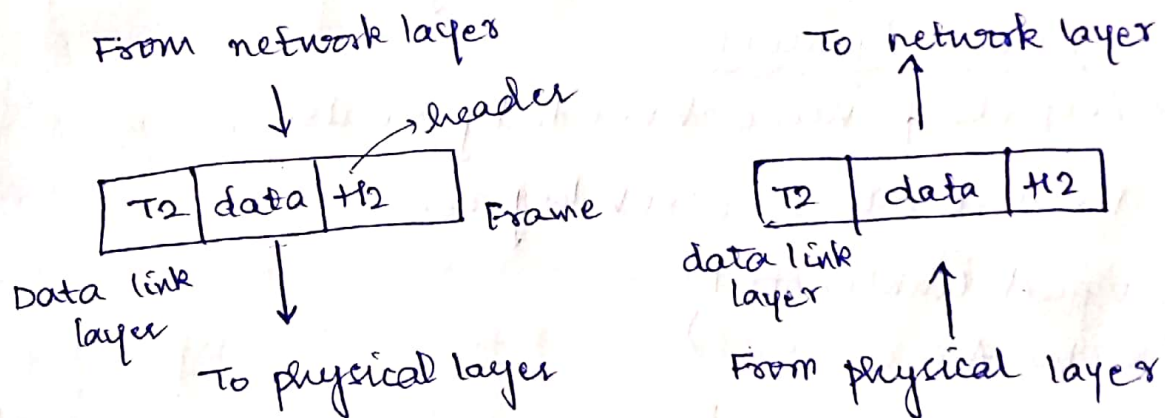 From network layer
header
T2 data H2
Frame
Data link
layer
To physical layer
To network layer
T2 data H2
data link
layer
From physical layer